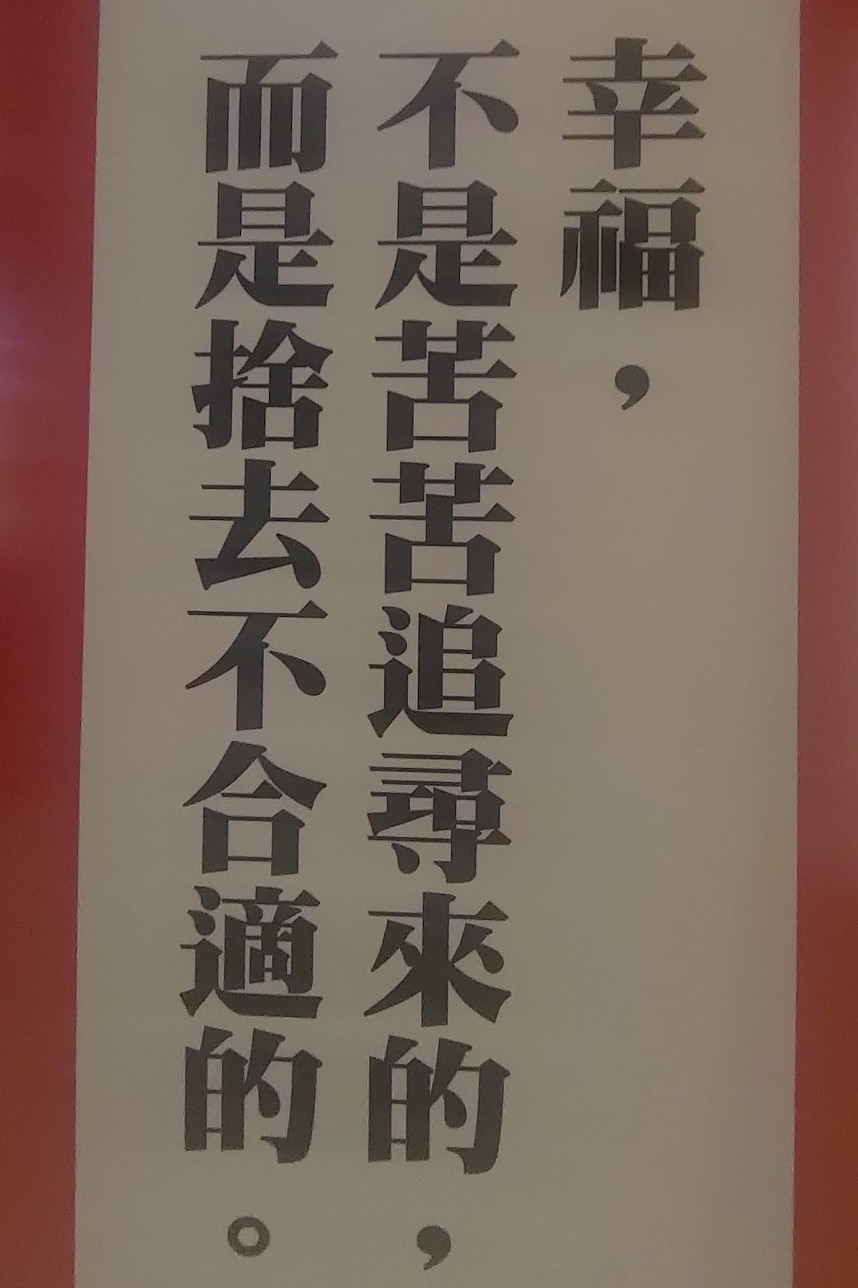 幸福，
不是苦苦追尋來的，
而是捨去不合適的。